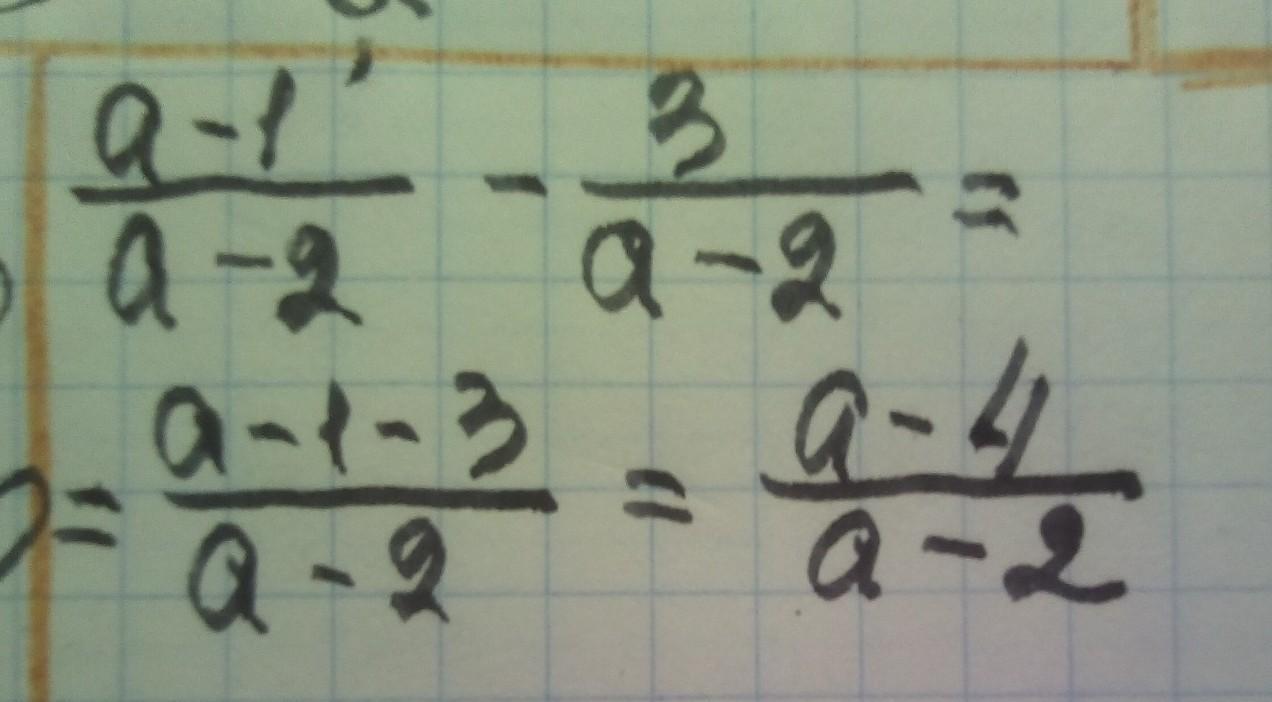 (a-1)/(a-2) - 3/(a-2) =
= (a-1-3)/(a-2) = (a-4)/(a-2)